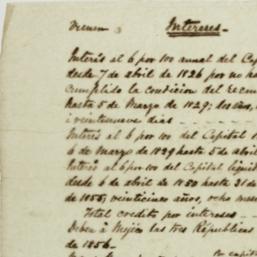 Vienen Intereses.
Interés al 6 por 100 annal del Cap
desde 7 de abril de 1826 por no ha
cumplido la condicion del recon
hasta 5 de Marzo de 1829; dos años,
i veintinueve dias
Interés al 6 por 100 del Capital
6 de Marzo de 1829 hasta 5 de abril
Interés al 6 por 100 del Capital liquid
desde 6 de abril de 1830 hasta 31 de
de 1855, veinticinco años, ocho mes
Total credito por intereses
Deben á Méjico las tres Republicas
de 1856.
Por capital